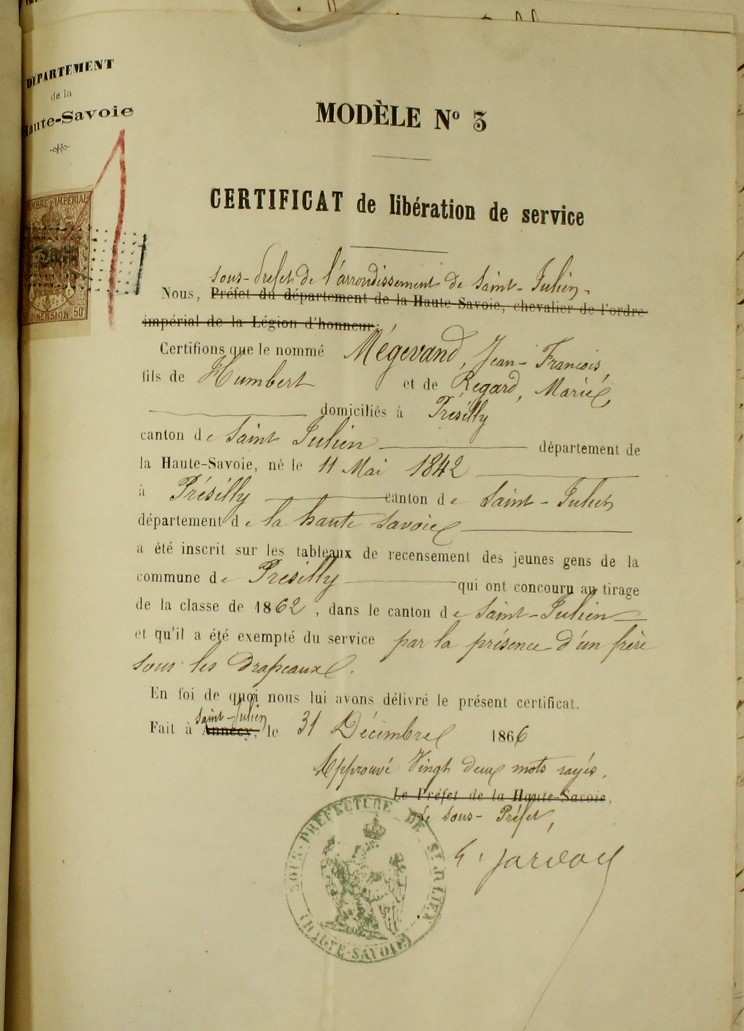 DÉPARTEMENT
de la
Haute-Savoie
MODÈLE Nº 3
CERTIFICAT de libération de service
sous-Préfet de l'arrondissement de Saint-Julien-
Nous, Préfet du département de la Haute-Savoie, chevalier de l'ordre
impérial de la Légion d'honneur,
Certifions que le nommé Mégevand, Jean-François,
fils de Humbert et de Regard, Marie,
domiciliés à Présilly
canton de Saint Julien département de
la Haute-Savoie, né le 11 Mai 1842
à Présilly canton de Saint-Julien
département de la haute Savoie
a été inscrit sur les tableaux de recensement des jeunes gens de la
commune de Présilly qui ont concouru au tirage
de la classe de 1862, dans le canton de Saint-Julien
et qu'il a été exempté du service par la présence d'un frère
sous les drapeaux.
En foi de quoi nous lui avons délivré le présent certificat.
Saint-Julien
Fait à Annecy, le 31 Décembre 1866
Approuvé Vingt deux mots rayés.
Le Préfet de la Haute-Savoie,
Le Sous-Préfet,
TIMBRE IMPÉRIAL
DIMENSION 50
SOUS-PRÉFECTURE DE ST JULIEN
(HAUTE-SAVOIE)